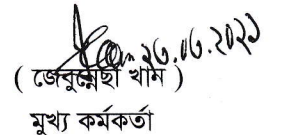 ২৬.০৬.২০২১
( জেবুন্নেছা খানম )
মুখ্য কর্মকর্তা